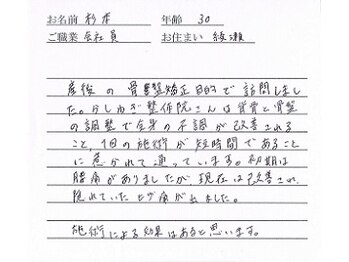 お名前 杉本 年齢 30
ご職業 会社員 お住まい 綾瀬
産後の骨盤矯正目的で訪問しまし
た。かしわぎ整体院さんは背骨と骨盤
の調整で全身の不調が改善される
こと、1回の施術が短時間であること
に惹かれて通っています。初期は
腰痛がありましたが現在は改善され、
隠れていたヒザ痛がとれました。
施術による効果はあると思います。